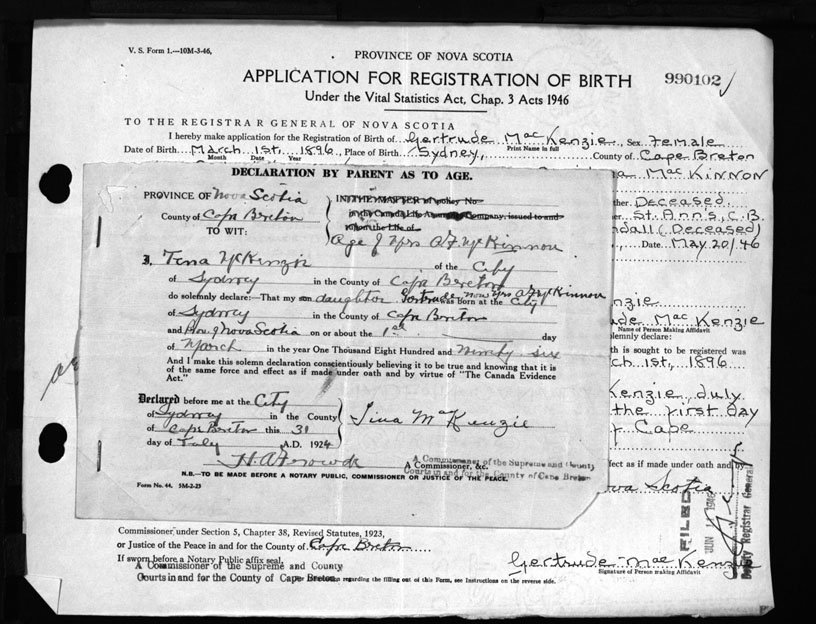 V. S. Form 1.—10M-3-46.
PROVINCE OF NOVA SCOTIA
APPLICATION FOR REGISTRATION OF BIRTH
990102
Under the Vital Statistics Act, Chap. 3 Acts 1946
TO THE REGISTRAR GENERAL OF NOVA SCOTIA
I hereby make application for the Registration of Birth of Gertrude MacKenzie, Sex Female
Print Name in full
Date of Birth March 1st, 1896, Place of Birth Sydney, County of Cape Breton
Month Date Year
MacKinnon
Deceased.
St. Anns, C.B.
(Deceased)
Date May 20/46
DECLARATION BY PARENT AS TO AGE.
PROVINCE OF Nova Scotia
IN THE MATTER of policy No
County of Cape Breton
in the Canada Life Assurance Company, issued to and
TO WIT:
upon the Life of
Age of Mrs A F McKinnon
I, Tena McKinzie of the City
of Sydney in the County of Cape Breton
do solemnly declare:—That my son daughter Gertrude now Mrs A F McKinnon was born at the City
of Sydney in the County of Cape Breton
and Prov of Nova Scotia on or about the 1st day
of March in the year One Thousand Eight Hundred and Ninety six
And I make this solemn declaration conscientiously believing it to be true and knowing that it is
of the same force and effect as if made under oath and by virtue of "The Canada Evidence
Act."
Declared before me at the City
of Sydney in the County
of Cape Breton this 31
day of July A.D. 1924
Tina McKenzie
A Commissioner of the Supreme and County
A Commissioner, &c.
Courts in and for the County of Cape Breton
N.B.—TO BE MADE BEFORE A NOTARY PUBLIC, COMMISSIONER OR JUSTICE OF THE PEACE.
Form No. 44, 5M-2-23
nzie
de MacKenzie
Name of Person Making Affidavit
lemnly declare:
th is sought to be registered was
ch 1st, 1896
Kenzie, duly
the first day
f Cape
ect as if made under oath and by
ova Scotia
FILED
JUN
Deputy Registrar General
Commissioner under Section 5, Chapter 38, Revised Statutes, 1923,
or Justice of the Peace in and for the County of Cape Breton
If sworn before a Notary Public affix seal.
A Commissioner of the Supreme and County
Courts in and for the County of Cape Breton
regarding the filling out of this Form, see Instructions on the reverse side.
Gertrude MacKenzie
Signature of Person making Affidavit